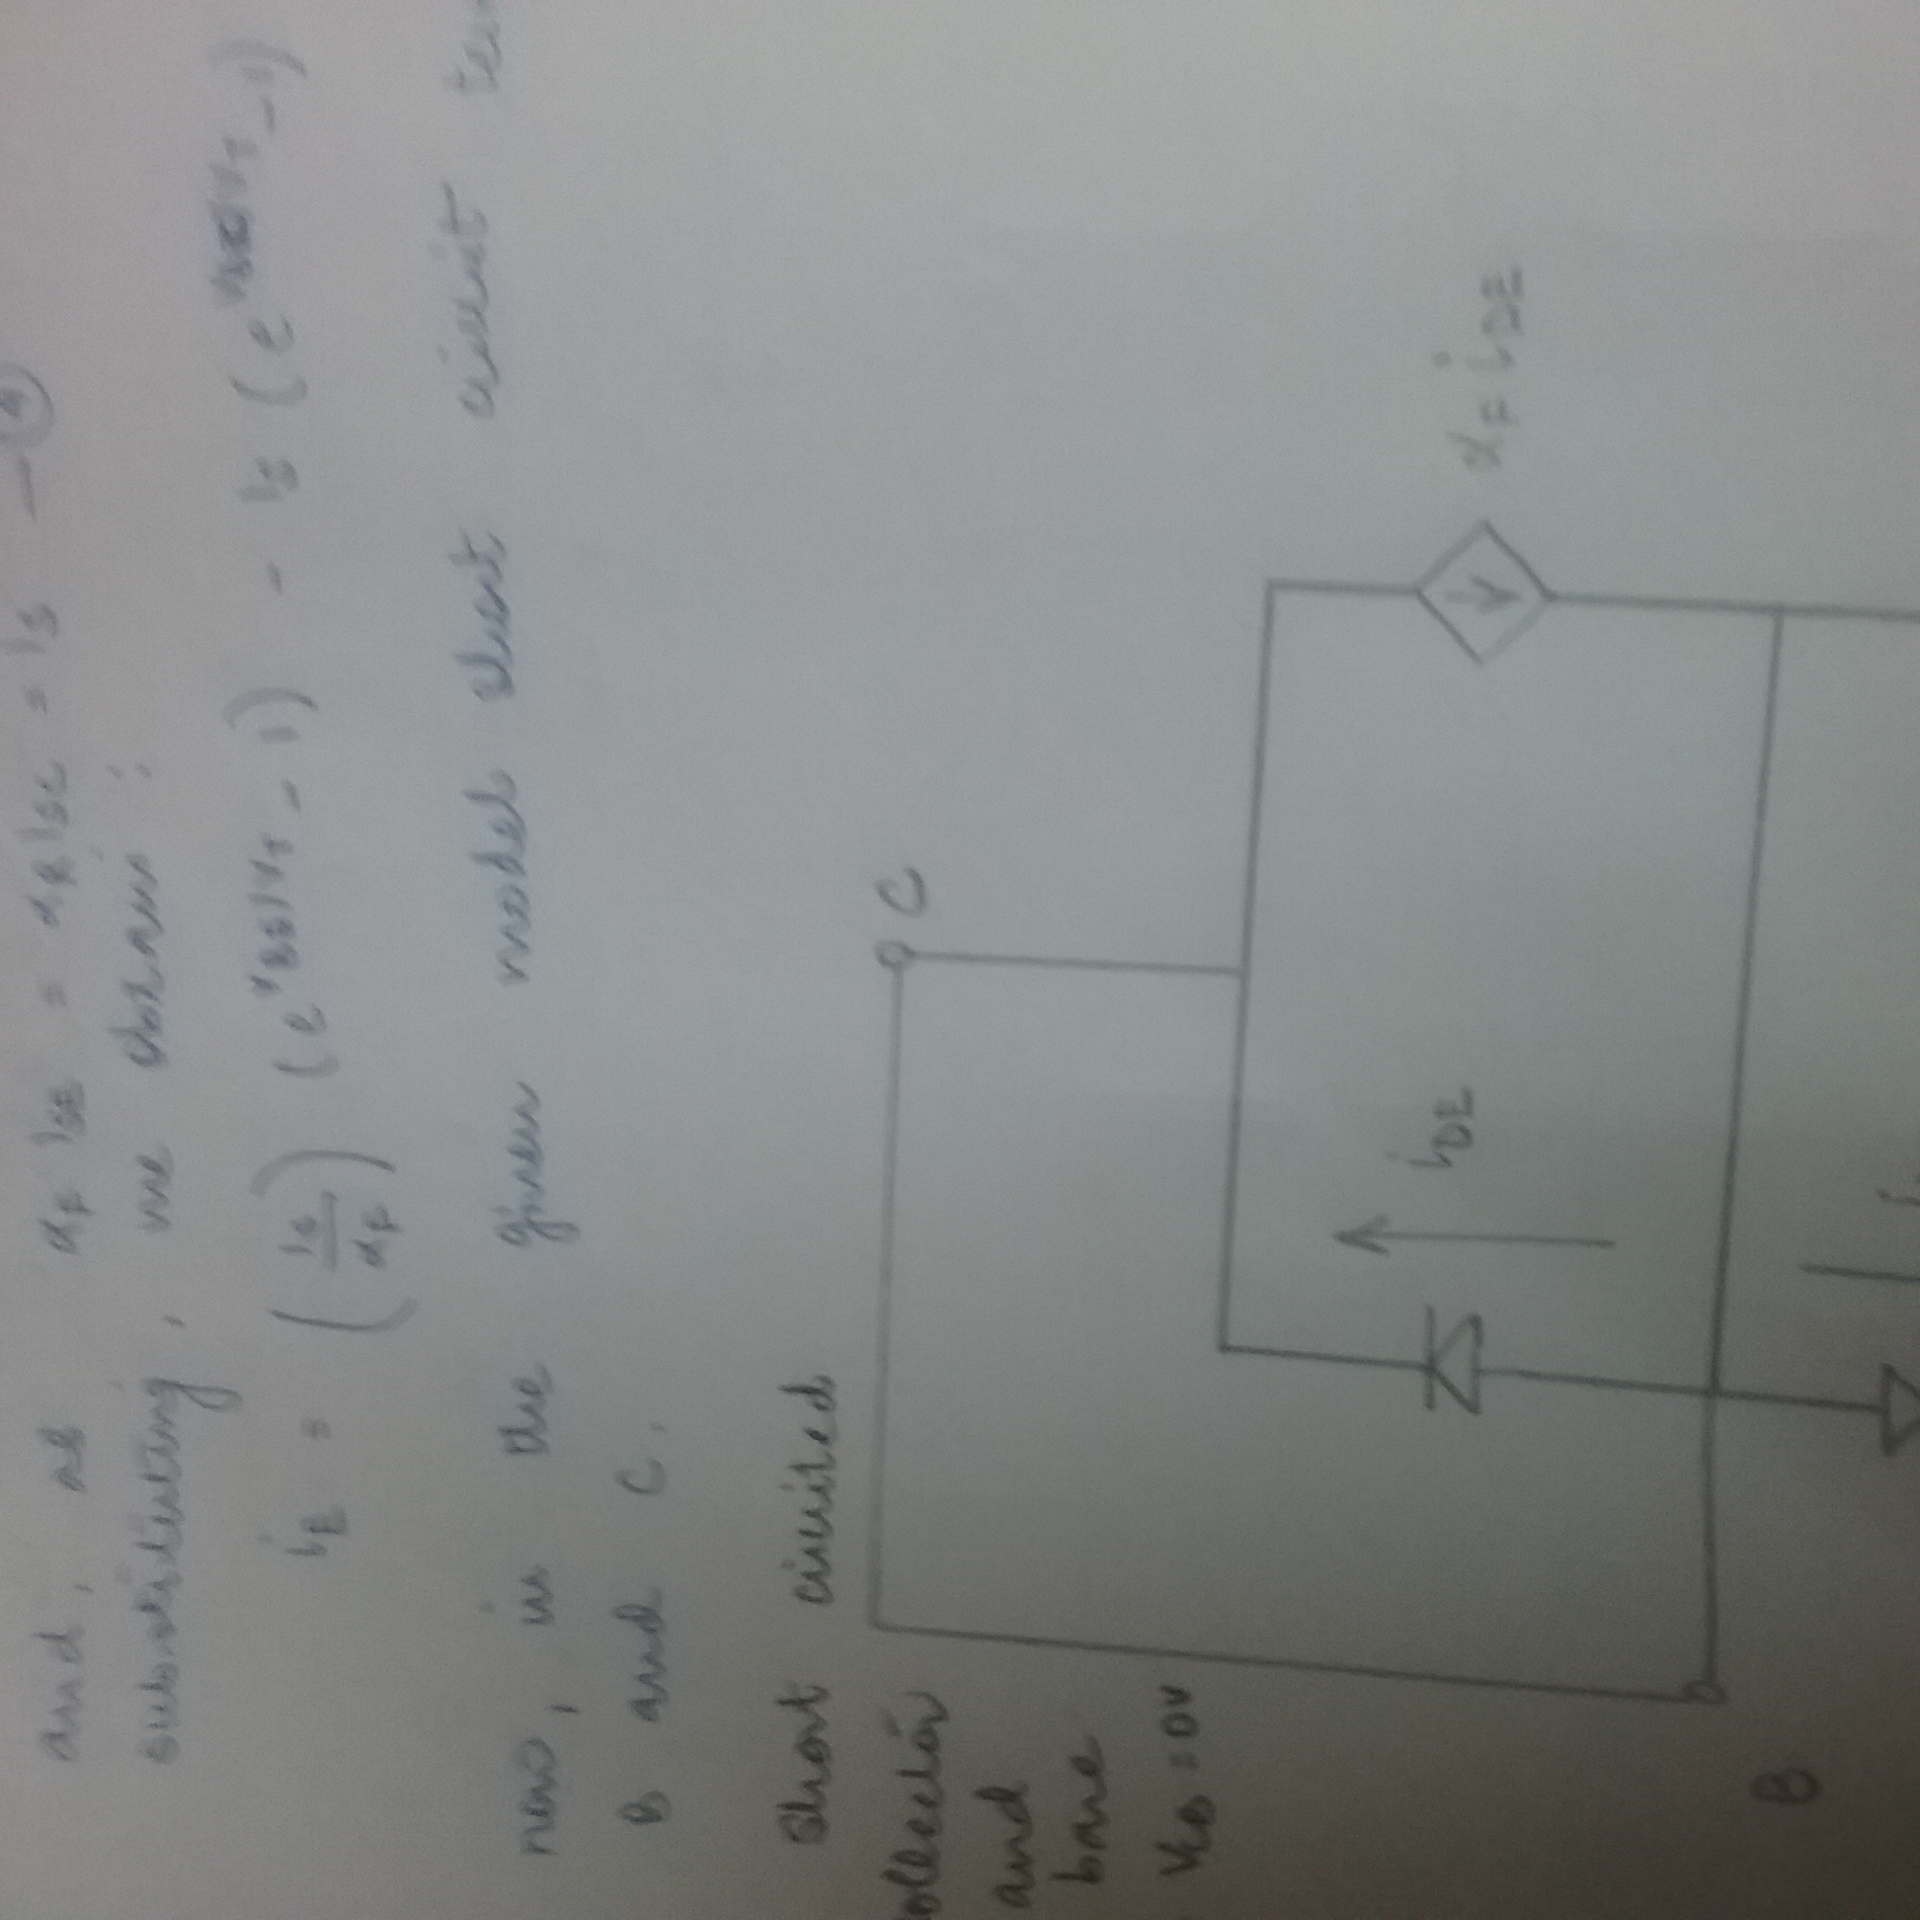 and, as αF ISE = αR ISC = IS — ④
substituting, we obtain :
iE = (IS/αF) (e^vBE/VT - 1) - IS (e^vBC/VT - 1)
now, in the given model short circuit
B and C.
short circuited
collector
and
base
VCB = 0V
C
iDE
αF iDE
B